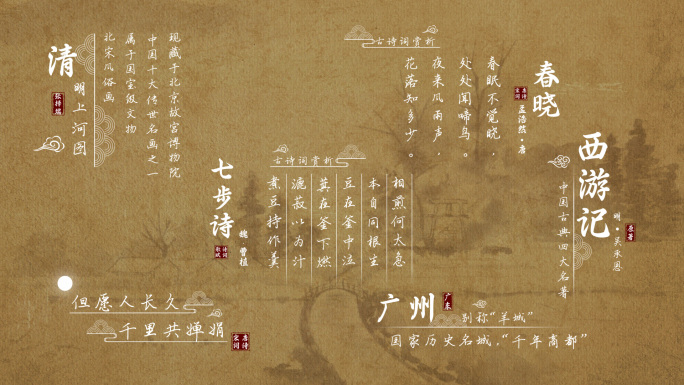 清
明上河图
张择端
现藏于北京故宫博物院
中国十大传世名画之一
属于国宝级文物
北宋风俗画
古诗词赏析
春晓
唐诗
宋词
孟浩然·唐
春眠不觉晓，
处处闻啼鸟。
夜来风雨声，
花落知多少。
西游记
原著
明·吴承恩
中国古典四大名著
七步诗
魏·曹植
诗词
歌赋
古诗词赏析
煮豆持作羹
漉菽以为汁
萁在釜下燃
豆在釜中泣
本自同根生
相煎何太急
但愿人长久
千里共婵娟
唐诗
宋词
广州
广东
别称“羊城”
国家历史名城，“千年商都”